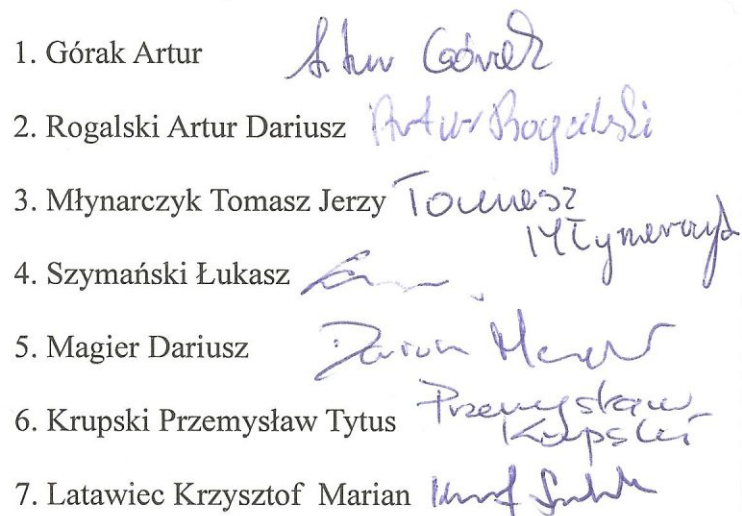 1. Górak Artur Artur Górak
2. Rogalski Artur Dariusz Artur Rogalski
3. Młynarczyk Tomasz Jerzy Tomasz
Młynarczyk
4. Szymański Łukasz
5. Magier Dariusz Dariusz Magier
6. Krupski Przemysław Tytus Przemysław
Krupski
7. Latawiec Krzysztof Marian